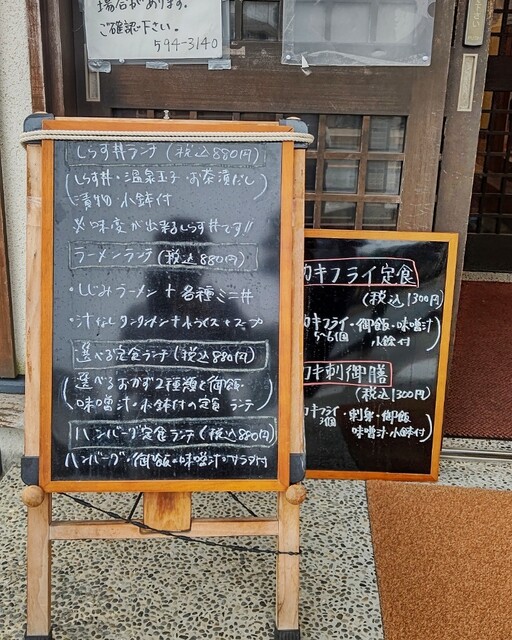 場合があります。
ご確認下さい。
594-3140
しらす丼ランチ(税込880円)
(しらす丼・温泉玉子・お茶漬だし
漬物・小鉢付)
※味変が出来るしらす丼です!!
ラーメンランチ(税込880円)
・しじみラーメン+各種ミニ丼
・汁なしタンタンメン+小ライス+スープ
選べる定食ランチ(税込880円)
(選べるおかず2種類と御飯・
味噌汁・小鉢付の定食ランチ)
ハンバーグ定食ランチ(税込880円)
ハンバーグ・御飯・味噌汁・サラダ付
カキフライ定食
(税込1300円)
カキフライ・御飯・味噌汁
5~6個 小鉢付)
カキ刺御膳
(税込1300円)
カキフライ・刺身・御飯
3個 味噌汁・小鉢付)